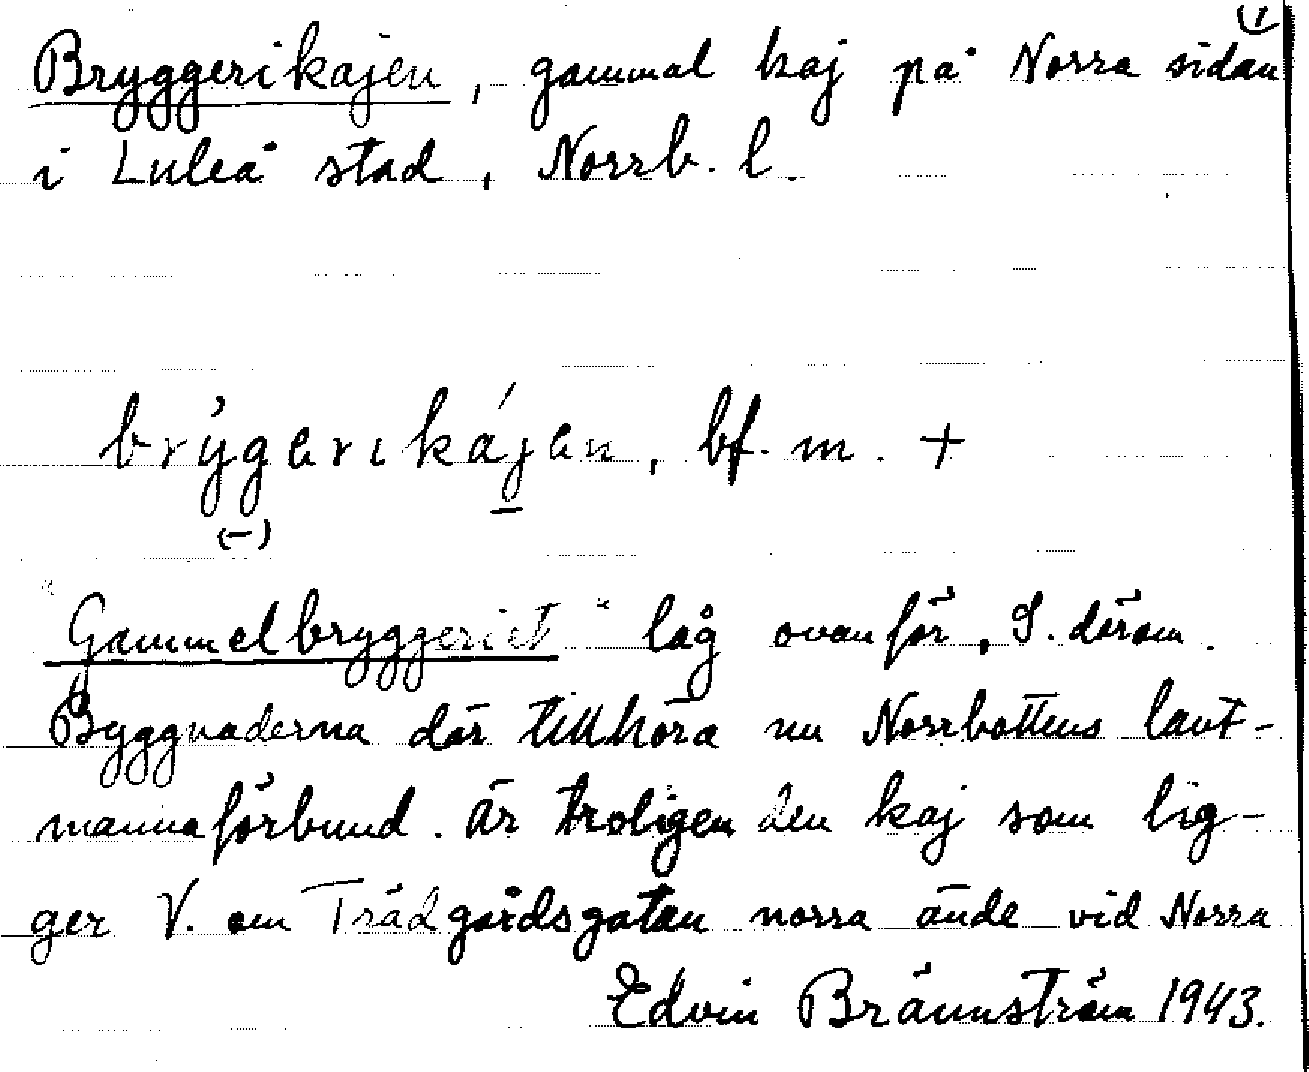 (1
Bryggerikajen, gammal kaj på Norra sidan
i Luleå stad, Norrb. l.
brýgerikájen, bf. m. +
(-)
"Gammelbryggeriet" låg ovanför, S. därom.
Byggnaderna där tillhöra nu Norrbottens lant-
mannaförbund. Är troligen den kaj som lig-
ger V. om Trädgårdsgatan norra ände vid Norra
Edvin Brännström 1943.